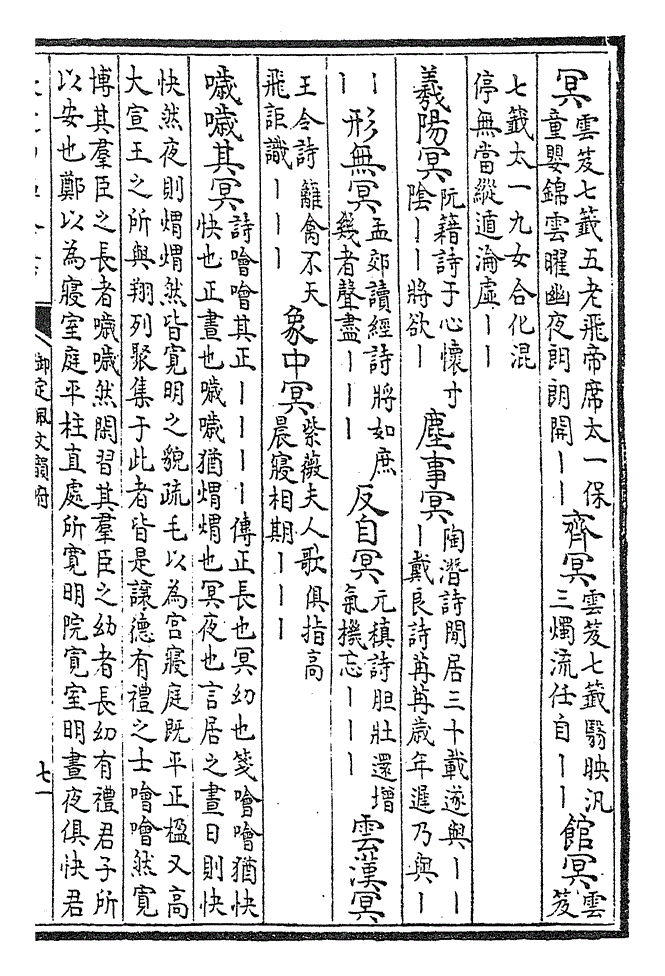 冥雲笈七籤五老飛帝席太一保
童嬰錦雲曜幽夜朗朗開丨丨
齊冥雲笈七籤翳映汎
三燭流任自丨丨
館冥雲
笈
七籤太一九女合化混
停無當縱遁淪虛丨丨
羲陽冥阮籍詩于心懷寸
陰丨丨將欲丨
塵事冥陶潛詩閒居三十載遂與丨丨
丨戴良詩苒苒歲年遲乃與丨
丨
丨
形無冥孟郊讀經詩將如庶
幾者聲盡丨丨丨
反自冥元稹詩胆壯還增
氣機忘丨丨丨
雲漢冥
王令詩籬禽不天
飛詎識丨丨丨
象中冥紫薇夫人歌俱指高
晨寢相期丨丨丨
噦噦其冥詩噲噲其正丨丨丨丨傳正長也冥幼也箋噲噲猶快
快也正晝也噦噦猶煟煟也冥夜也言居之晝日則快
快然夜則煟煟然皆寬明之貌疏毛以為宮寢庭既平正楹又高
大宣王之所與翔列聚集于此者皆是讓德有禮之士噲噲然寬
博其羣臣之長者噦噦然閑習其羣臣之幼者長幼有禮君子所
以安也鄭以為寢室庭平柱直處所寬明院寬室明晝夜俱快君
御定佩文韻府
七一